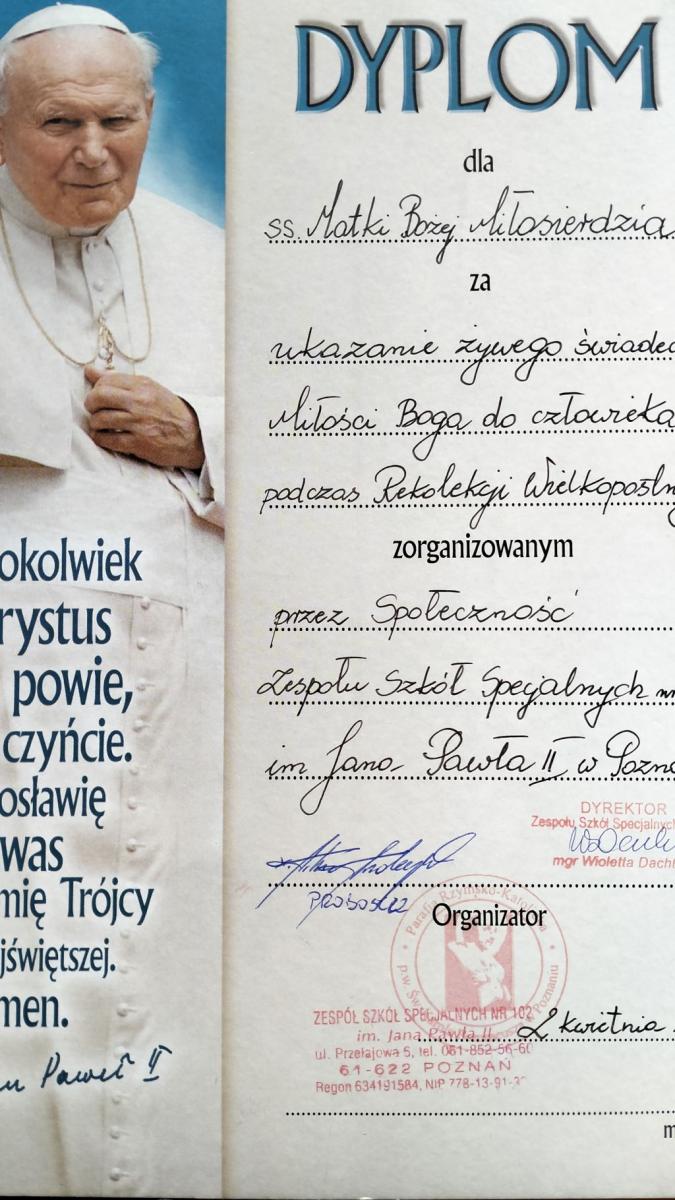 DYPLOM
dla
ss. Matki Bożej Miłosierdzia
za
ukazanie żywego świadec
Miłości Boga do człowieka
podczas Rekolekcji Wielkopostny
zorganizowanym
przez Społeczność
Zespołu Szkół Specjalnych nr
im Jana Pawła II w Pozna
okolwiek
rystus
powie,
czyńcie.
osławię
was
mię Trójcy
jświętszej.
men.
Paweł II
DYREKTOR
Zespołu Szkół Specjalnych
mgr Wioletta Dacht
PROBOSZCZ
Organizator
Parafia Rzymsko-Katolicka
p.w. Św. Poznaniu
ZESPÓŁ SZKÓŁ SPECJALNYCH NR 102
im. Jana Pawła II
2 kwietnia
ul. Przełajowa 5, tel. 061-852-56-60
61-622 POZNAŃ
Regon 634191584, NIP 778-13-91-
m